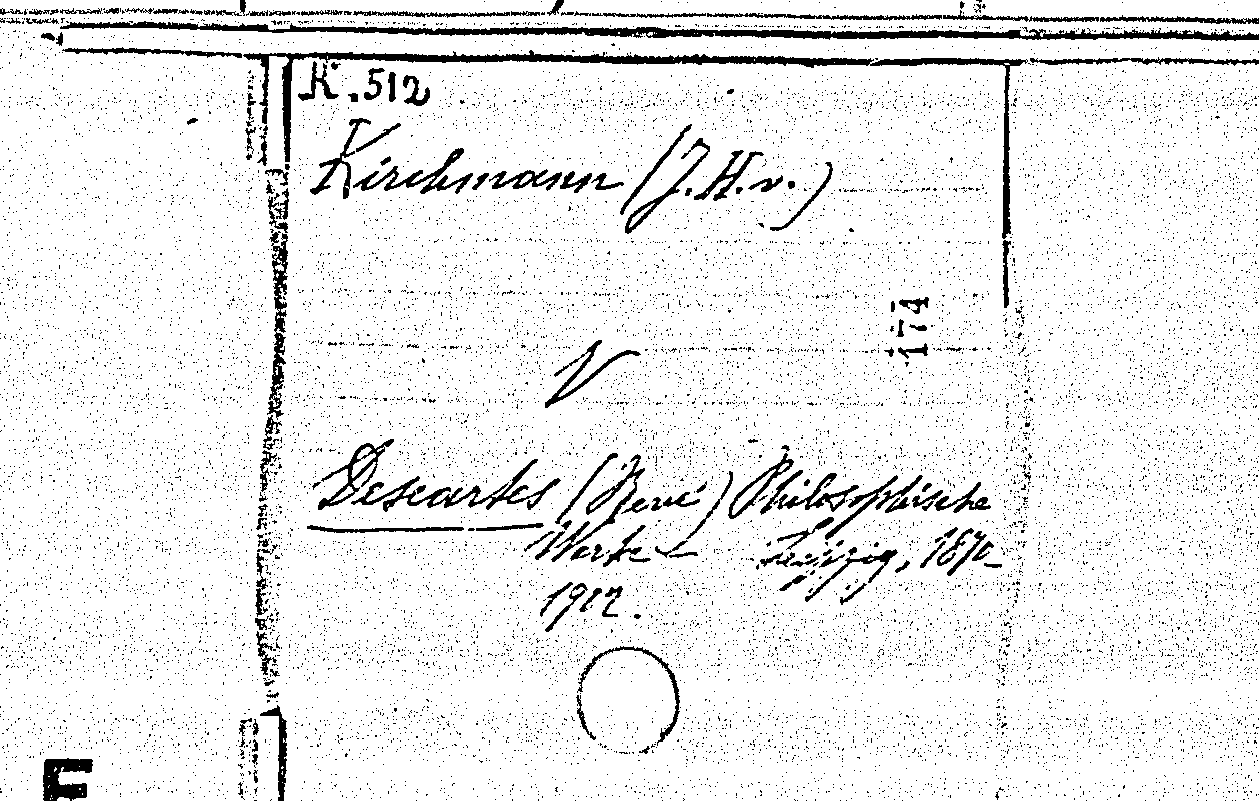 K.512
Kirchmann (J.H.v.)
174
V
Descartes (René) Philosophische
Werke — Leipzig, 1870-
1912.
E